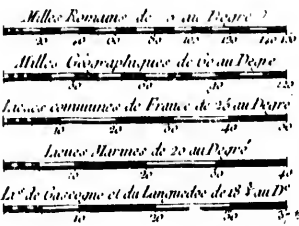 Milles Romains de 75 au Degré
20 40 60 80 100 120 140 150
Milles Géographiques de 60 au Degre
30 60 90 120
Lieues communes de France de 25 au Degré
10 20 30 40 50
Lieues Marines de 20 au Degré
10 20 30 40
L.es de Gascogne et du Languedoc de 18 ¾ au D.é
10 20 30 37 ½